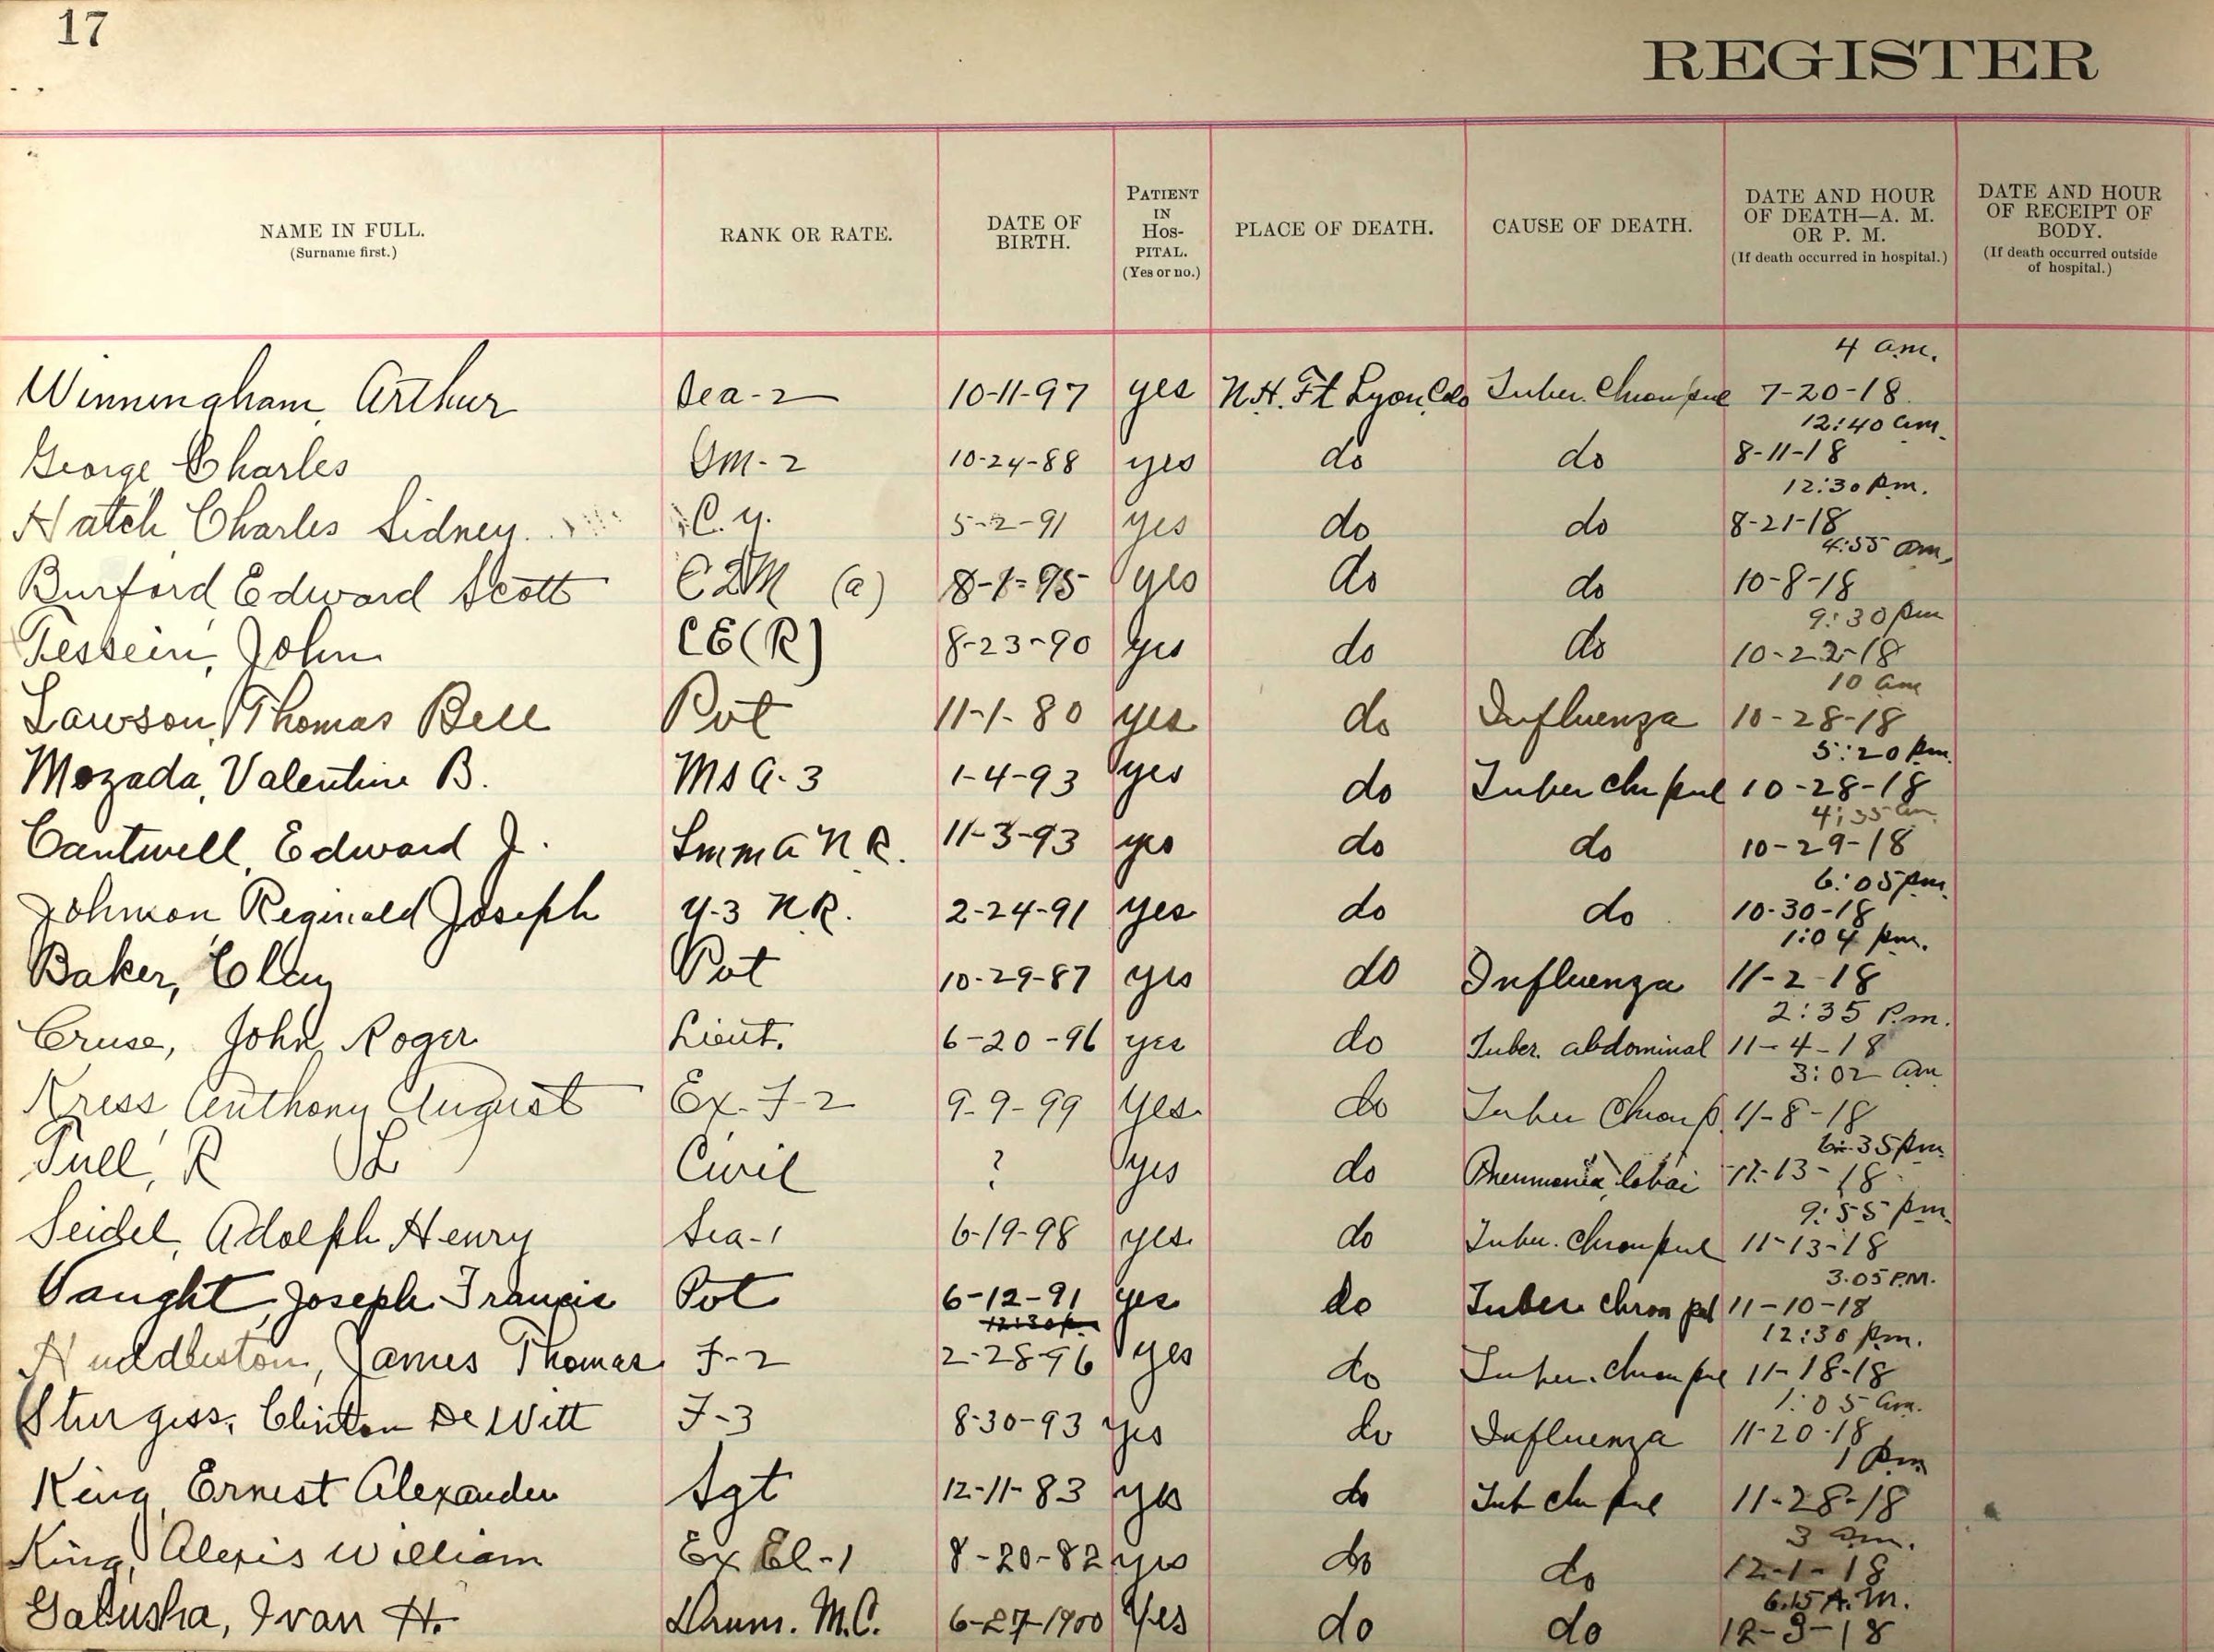 17
REGISTER
NAME IN FULL. (Surname first.) RANK OR RATE. DATE OF BIRTH. PATIENT IN HOS-PITAL. (Yes or no.) PLACE OF DEATH. CAUSE OF DEATH. DATE AND HOUR OF DEATH—A. M. OR P. M. (If death occurred in hospital.) DATE AND HOUR OF RECEIPT OF BODY. (If death occurred outside of hospital.)
4 am.
Winningham, Arthur Sea-2 10-11-97 yes N.H. Ft Lyon, Colo Tuber. Chron pul 7-20-18
12:40 am.
George, Charles 10-24-88 yes do do 8-11-18
12:30 pm.
Hatch, Charles Sidney. C.Y. 5-2-91 yes do do 8-21-18
4:55 am.
Burford, Edward Scott (a) 8-1-95 yes do do 10-8-18
9:30 pm
Tessein, John CE(R) 8-23-90 yes do do 10-22-18
10 am
Lawson, Thomas Bell Pvt 11-1-80 yes do Influenza 10-28-18
5:20 pm.
Mozada, Valentine B. Ms a-3 1-4-93 yes do Tuber chr pul 10-28-18
4:35 am.
Cantwell, Edward J. Lmm a N R. 11-3-93 yes do do 10-29-18
6:05 pm.
Johnson, Reginald Joseph Y-3 N.R. 2-24-91 yes do do 10-30-18
1:04 pm.
Baker, Clay Pvt 10-29-87 yes do Influenza 11-2-18
2:35 P.m.
Cruse, John Roger Lieut. 6-20-96 yes do Tuber. abdominal 11-4-18
3:02 am
Kress, Anthony August Ex. F-2 9-9-99 Yes. do Tuber Chron p. 11-8-18
6:35 pm.
Tull, R L Civil ? yes do Pneumonia, lobar 11-13-18
9:55 pm.
Seidel, Adolph Henry Sea-1 6-19-98 yes. do Tuber. Chron pul 11-13-18
3.05 P.M.
Vaught, Joseph Francis Pvt 6-12-91 yes do Tuber chron pul 11-10-18
12:30 p.m 12:30 pm.
Huddleston, James Thomas F-2 2-28-96 yes do Tuber. chron pul 11-18-18
1:05 am.
Sturgiss, Clinton De Witt F-3 8-30-93 yes do Influenza 11-20-18
1 pm
King, Ernest Alexander Sgt 12-11-83 yes do Tub chr pul 11-28-18
3 am.
King, Alexis William Ex El-1 8-20-82 yes do do 12-1-18
6.15 A.M.
Galusha, Ivan H. Drum. M.C. 6-27-1900 Yes do do 12-3-18